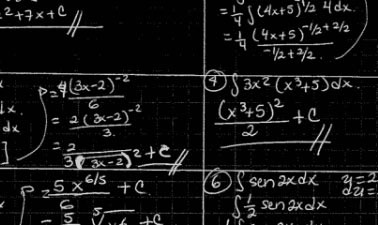 2+7x+C
= 1/4 ∫ (4x+5)^1/2 4dx.
= 1/4 (4x+5)^-1/2+2/2
-1/2+2/2.
P = 4(3x-2)^-2
6
= 2(3x-2)^-2
3.
= 2
3(3x-2)^2 + C
dx
]
④ ∫ 3x² (x³+5) dx.
(x³+5)² + C
2
5x^6/5 + C
6
= 5
+C
⑥ ∫ sen 2x dx
∫ 1/2 sen 2x dx